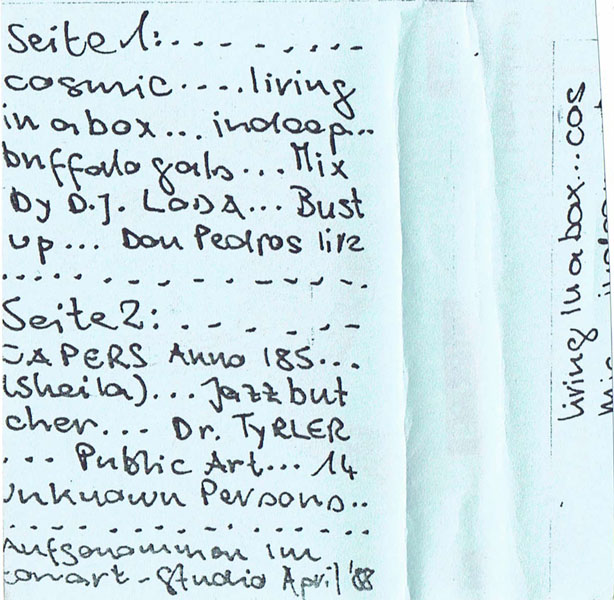 Seite 1:. - - - . - - - -
cosmic....living
in a box... indeep..
buffalo gals...Mix
by D.J. LODA... Bust
up... Don Pedros live
Seite 2:. - - - - -
CAPERS Anno 185...
(Sheila)... Jazzbut
cher... Dr. TyRLER
... Public Art... 14
Unknown Persons..
Aufgenommen im
tonart-Studio April '88
living in a box...cos